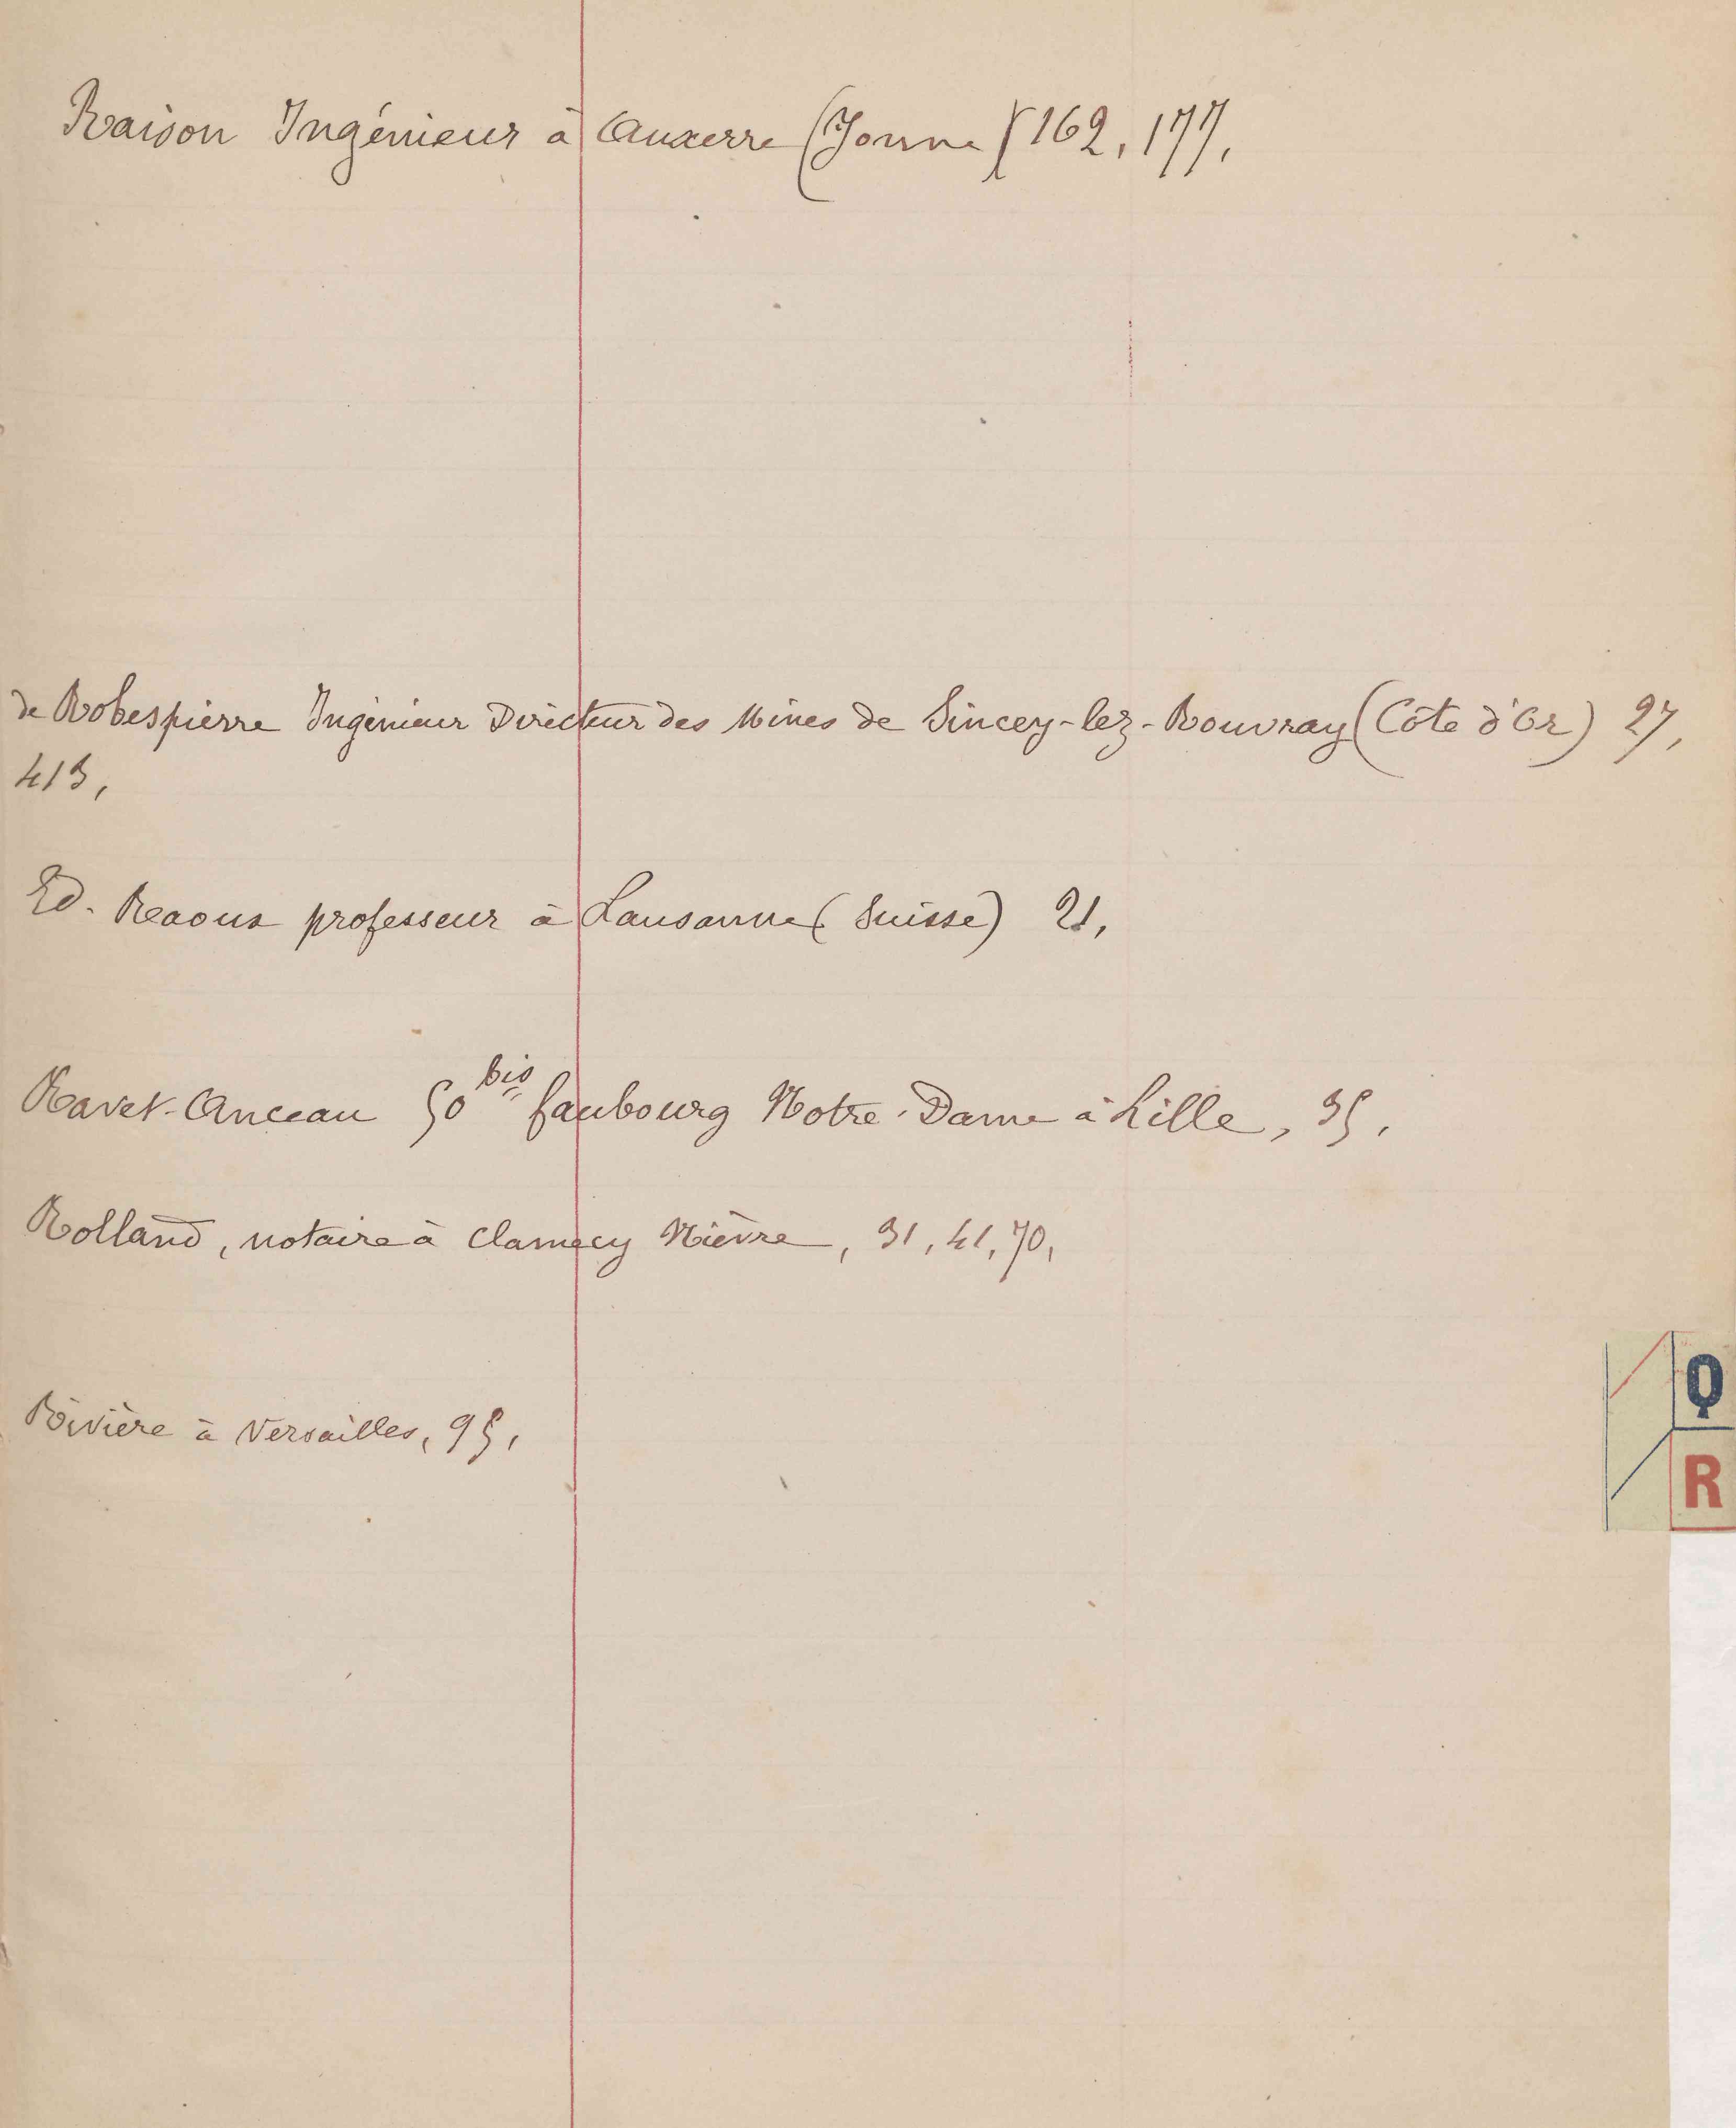 Raison Ingénieur à Auxerre (Yonne) 162, 177,
de Robespierre Ingénieur Directeur des Mines de Sincey-lez-Rouvray (Côte d'Or) 27,
413,
Ed. Raoux professeur à Lausanne (Suisse) 21,
Ravet-Anceau 50 bis faubourg Notre-Dame à Lille, 35,
Rolland, notaire à Clamecy Nièvre, 31, 41, 70,
Rivière à Versailles, 95,
Q
R